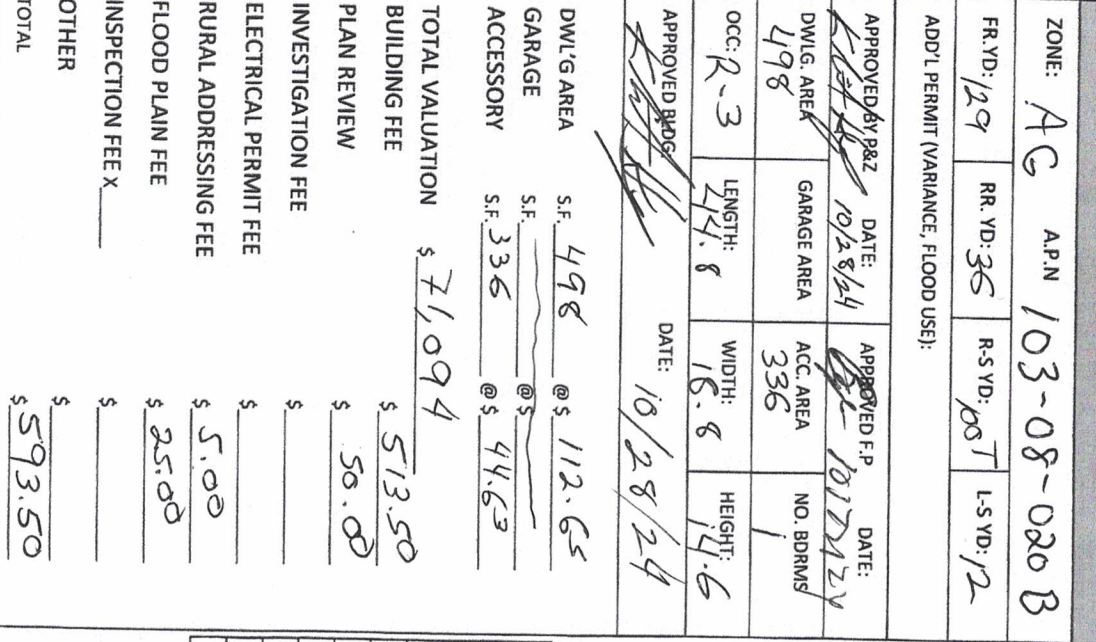 ZONE: AG A.P.N 103-08-020 B
FR.YD: 129 RR. YD: 36 R-S YD: 100+ L-S YD: 12
ADD'L PERMIT (VARIANCE, FLOOD USE):
APPROVED BY P&Z DATE: 10/28/24 APPROVED F.P DATE:
DWLG. AREA 498 GARAGE AREA ACC. AREA 336 NO. BDRMS 1
OCC: R-3 LENGTH: 44.8 WIDTH: 18.8 HEIGHT: 14.6
APPROVED BLDG DATE: 10/28/24
DWL'G AREA S.F. 498 @ $ 112.65
GARAGE S.F. @ $
ACCESSORY S.F. 336 @ $ 44.63
TOTAL VALUATION $ 71,094
BUILDING FEE $ 513.50
PLAN REVIEW $ 50.00
INVESTIGATION FEE $
ELECTRICAL PERMIT FEE $
RURAL ADDRESSING FEE $ 5.00
FLOOD PLAIN FEE $ 25.00
INSPECTION FEE X____ $
OTHER $
TOTAL $ 593.50